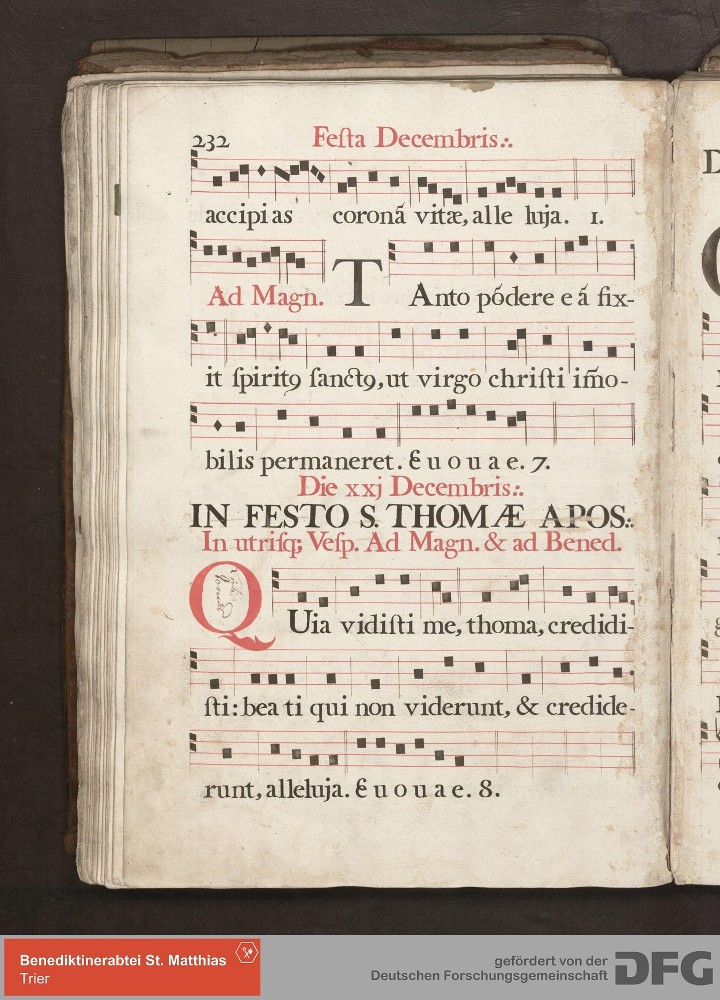 232 Festa Decembris:.
accipias coronã vitæ, alle luja. 1.
Ad Magn. TAnto põdere eã fix-
it spiritꝰ sanctꝰ, ut virgo christi im̃o-
bilis permaneret. Euouae. 7.
Die xxj Decembris:.
IN FESTO S. THOMÆ APOS:.
In utrisq; Vesp. Ad Magn. & ad Bened.
QUia vidisti me, thoma, credidi-
sti: beati qui non viderunt, & credide-
runt, alleluja. Euouae. 8.
Benediktinerabtei St. Matthias
Trier
gefördert von der
Deutschen Forschungsgemeinschaft
DFG